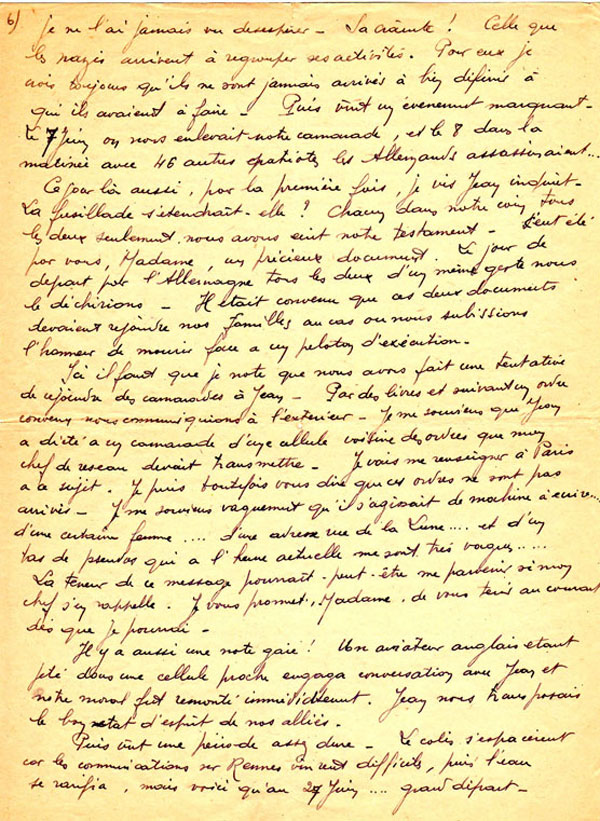 6)
je ne l'ai jamais vu desespérer - Sa crainte! Celle que
les nazis arrivent à regrouper ses activités. Pour eux je
crois toujours qu'ils ne sont jamais arrivés à bien définir à
qui ils avaient à faire - Puis vint un évènement marquant -
Le 7 Juin on nous enlevait notre camarade, et le 8 dans la
matinée avec 46 autres patriotes les Allemands assassinaient...
Ce jour là aussi, pour la première fois, je vis Jean inquiet -
La fusillade s'étendrait-elle? Chacun dans notre coin tous
les deux seulement nous avons écrit notre testament - C'eut été
pour vous, Madame, un précieux document. Le jour de
départ par l'Allemagne tous les deux d'un même geste nous
le déchirions - Il était convenu que ces deux documents
devaient rejoindre nos familles au cas ou nous subissions
l'honneur de mourir face a un peloton d'exécution -
Ici il faut que je note que nous avons fait une tentative
de rejoindre des camarades à Jean - Par des livres et suivant un ordre
convenu nous communiquions à l'exterieur - Je me souviens que Jean
a dicté a un camarade d'une cellule voisine des ordres que mon
chef de reseau devait transmettre - Je vais me renseigner à Paris
a ce sujet. Je puis toutefois vous dire que ces ordres ne sont pas
arrivés - Je me souviens vaguement qu'il s'agissait de machine à ecrire...
d'une certaine femme .... d'une adresse rue de la Lune.... et d'un
tas de pseudos qui a l'heure actuelle me sont très vagues.....
La teneur de ce message pourrait-peut-être me parvenir si mon
chef s'en rappelle. Je vous promet, Madame, de vous tenir au courant
dès que je pourrai -
Il y a aussi une note gaie! Un aviateur anglais etant
jeté dans une cellule proche engagea conversation avec Jean et
notre moral fut remonté immédiatement. Jean nous transposait
le bon etat d'esprit de nos alliés -
Puis vint une période assez dure - Le colis s'espacèrent
car les communications sur Rennes vinrent difficils, puis l'eau
se rarifia, mais voici qu'au 27 Juin .... grand départ -